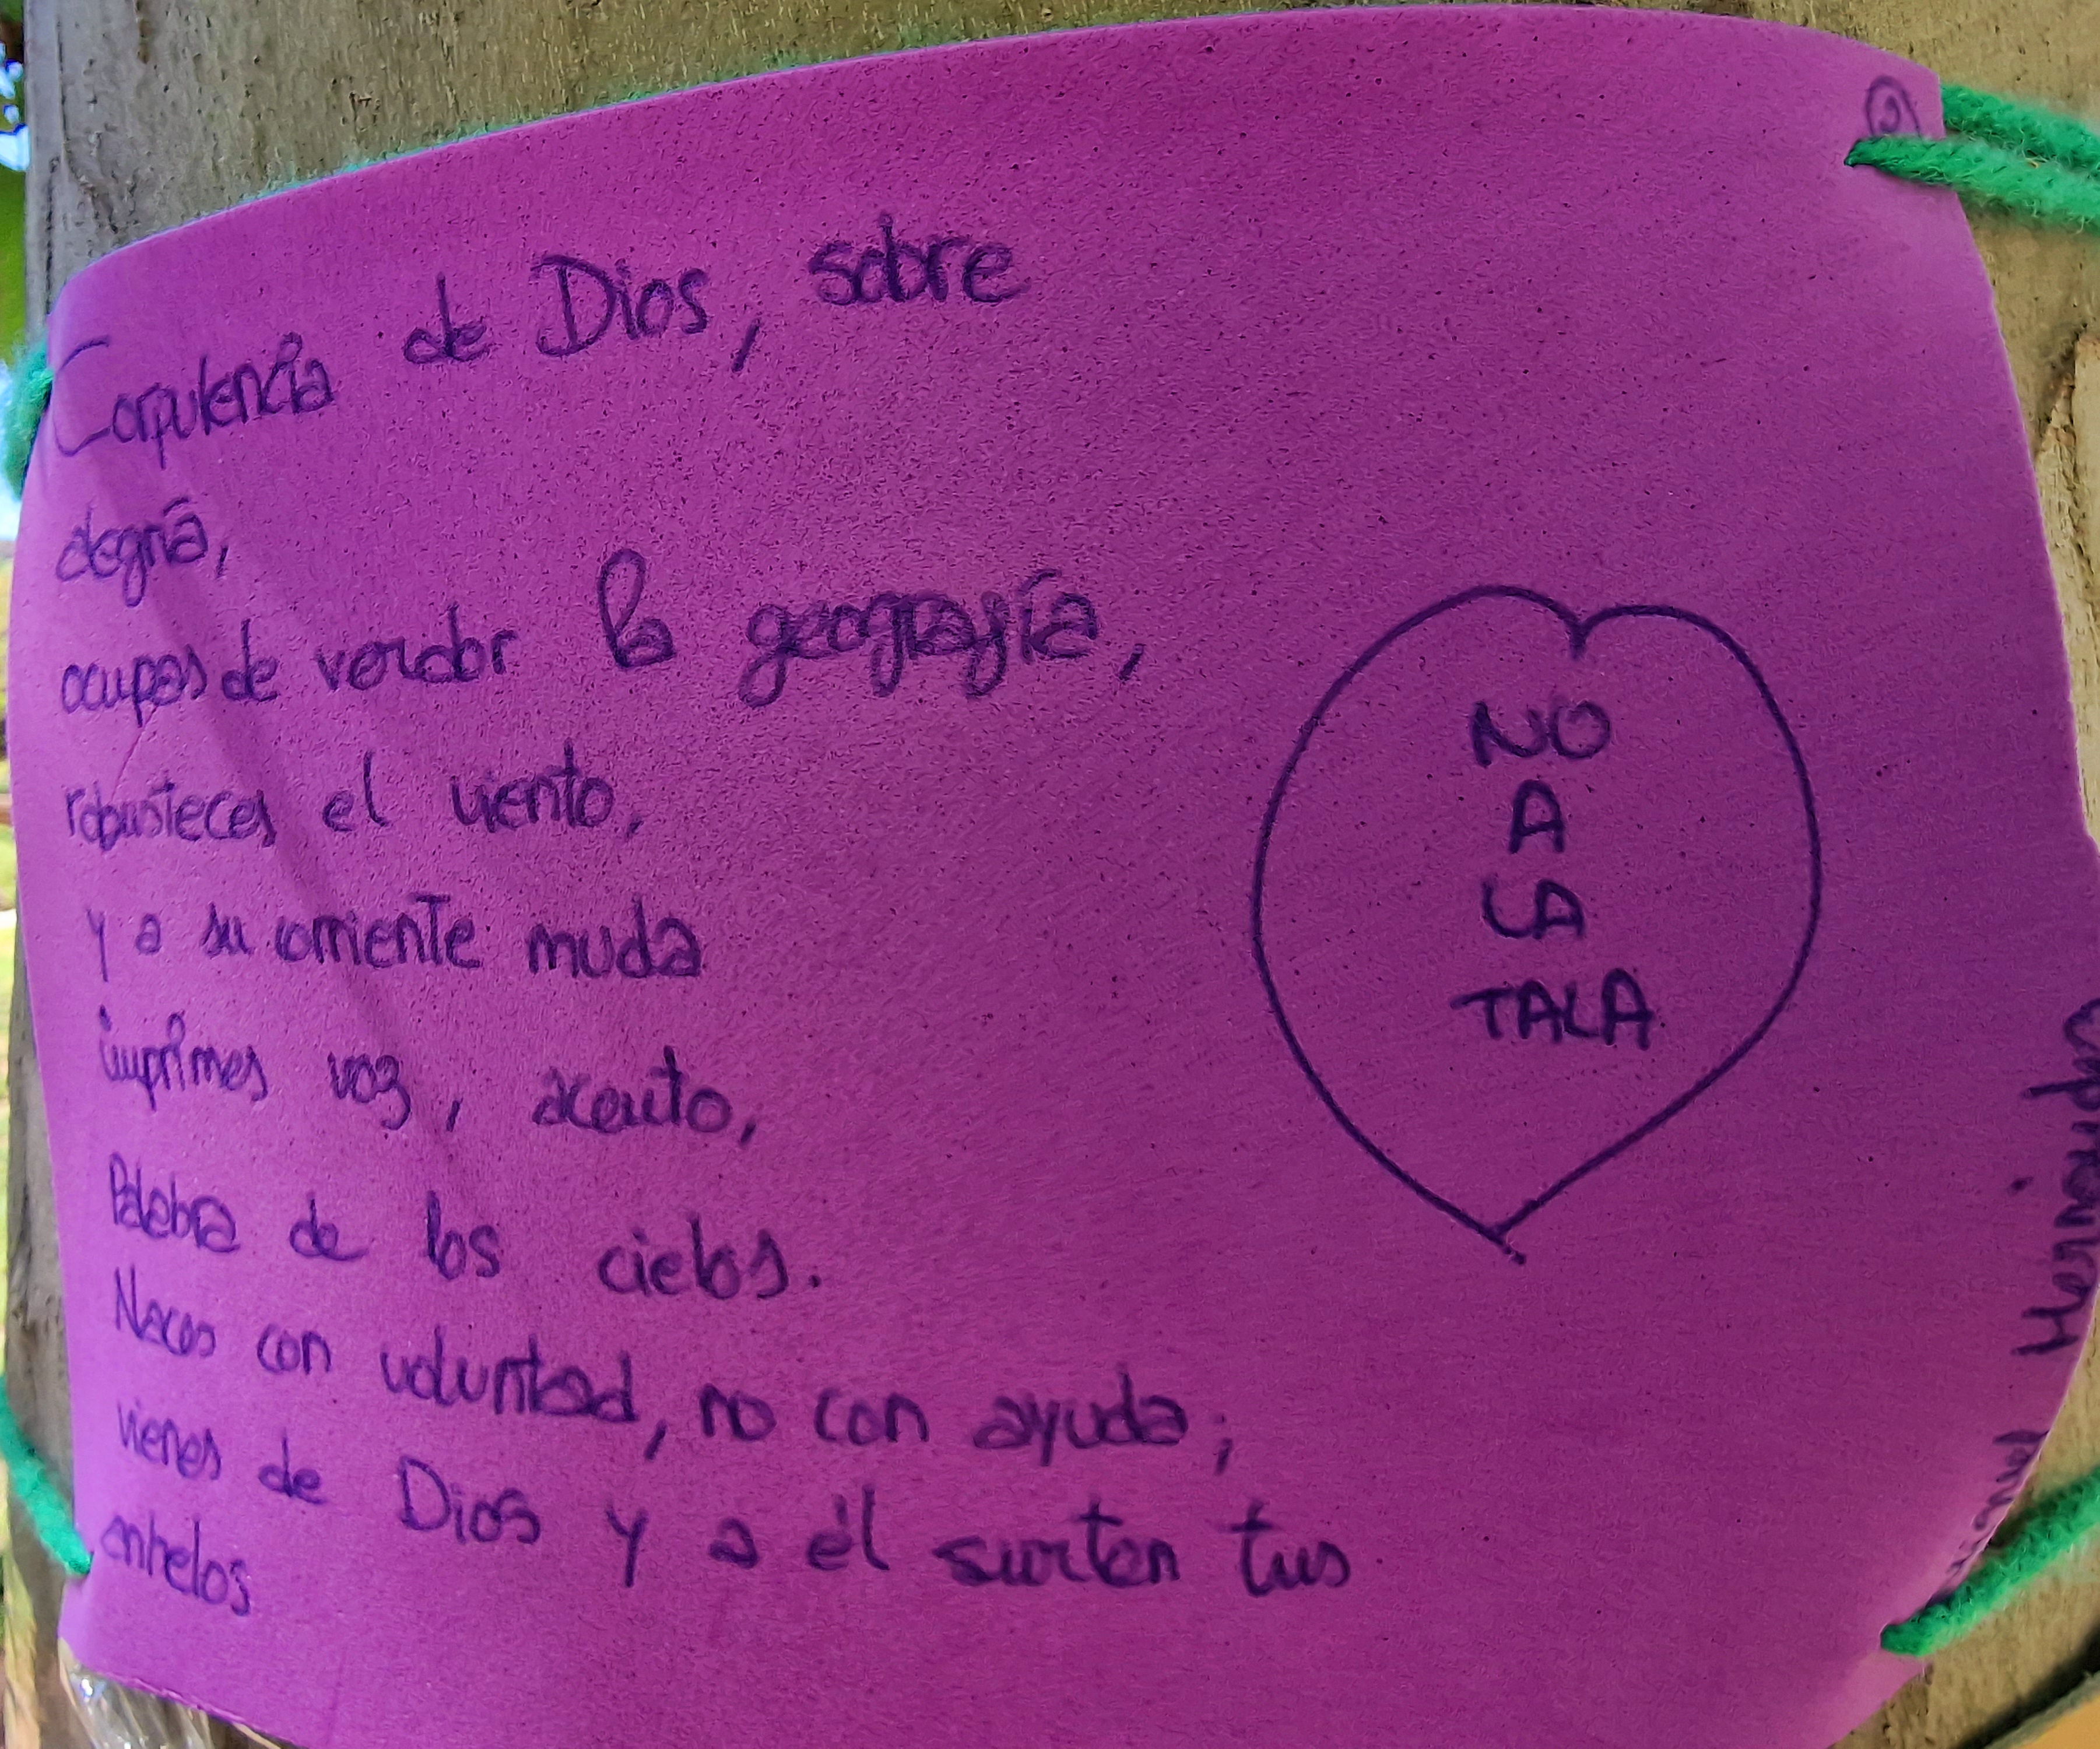 ②
Corpulencia de Dios, sobre
alegría,
ocupas de verdor la geografía,
robusteces el viento,
y a su corriente muda
imprimes voz, acento,
Palabra de los cielos.
Naces con voluntad, no con ayuda;
vienes de Dios y a él surten tus
anhelos
NO
A
LA
TALA
Miguel Hernández